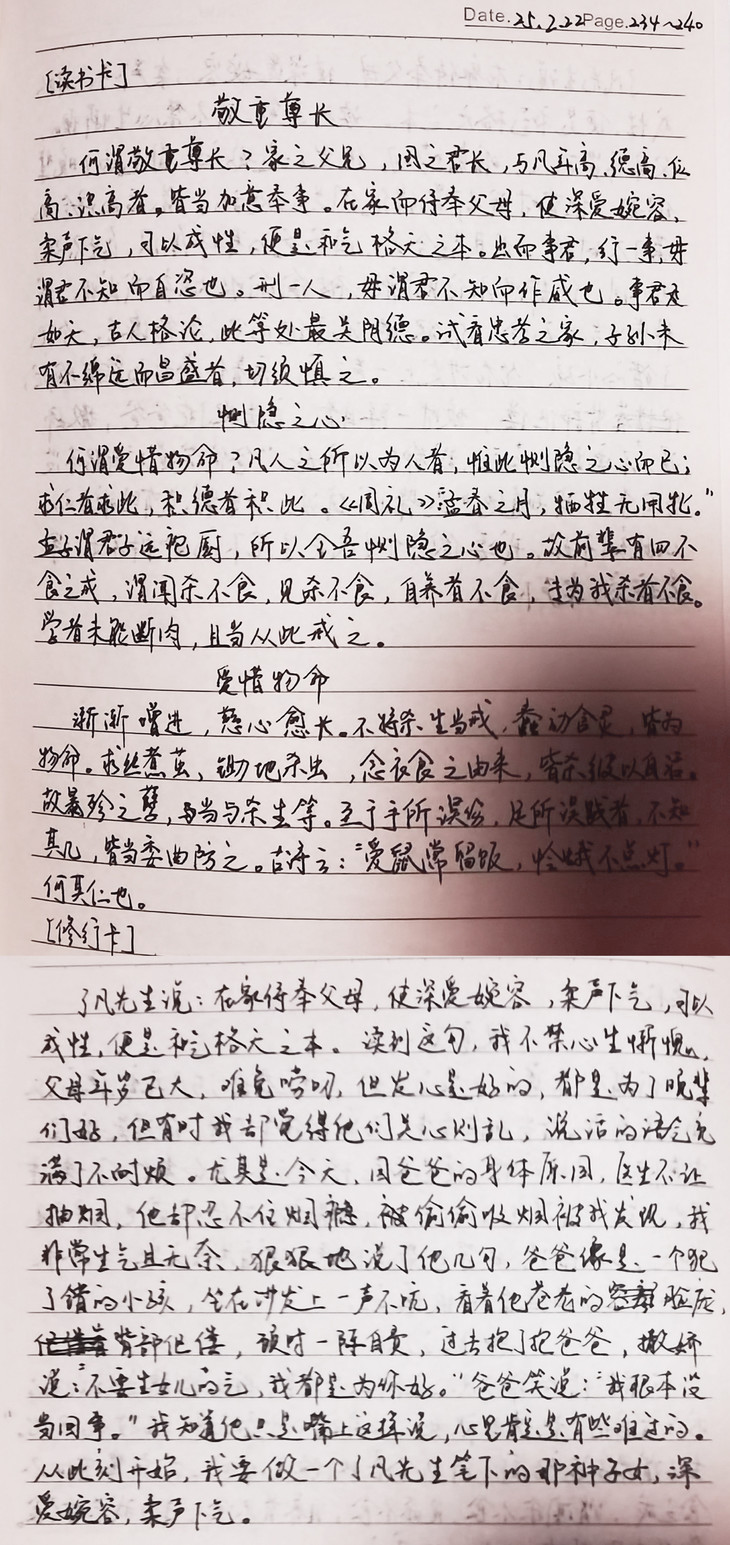 Date.25.2.22Page.234~240
[读书卡]
敬重尊长
何谓敬重尊长?家之父兄,国之君长,与凡年高、德高、位
高、识高者。皆当加意奉事。在家而侍奉父母,使深爱婉容、
柔声下气,可以成性,便是和气格天之本。出而事君,行一事,毋
谓君不知而自恣也。刑一人,毋谓君不知而作威也。事君
如天,古人格论,此等处最关阴德。试看忠孝之家,子孙未
有不绵远而昌盛者,切须慎之。
恻隐之心
何谓爱惜物命?凡人之所以为人者,惟此恻隐之心而已;
求仁者求此,积德者积此。《周礼》孟春之月,牺牲无用牝。”
孟子谓君子远庖厨,所以全吾恻隐之心也。故前辈有四不
食之戒,谓闻杀不食,见杀不食,自养者不食,专为我杀者不食。
学者未能断肉,且当从此戒之。
爱惜物命
渐渐增进,慈心愈长。不特杀生当戒,蠢动含灵,皆为
物命。求丝煮茧,锄地杀虫,念衣食之由来,皆杀彼以自活。
故暴殄之孽,当与杀生等。至于手所误伤,足所误践者,不知
其几,皆当委曲防之。古诗云:“爱鼠常留饭,怜蛾不点灯。”
何其仁也。
[修行卡]
了凡先生说:在家侍奉父母,使深爱婉容,柔声下气,可以
成性,便是和气格天之本。读到这句,我不禁心生惭愧,
父母年岁已大,难免唠叨,但发心是好的,都是为了晚辈
们好,但有时我却觉得他们关心则乱,说话的语气充
满了不耐烦。尤其是今天,因爸爸的身体原因,医生不让
抽烟,他却忍不住烟瘾,被偷偷吸烟被我发现,我
非常生气且无奈,狠狠地说了他几句,爸爸像是一个犯
了错的小孩,坐在沙发上一声不吭,看着他苍老的脸庞,
背部佝偻,顿时一阵自责,过去抱了抱爸爸,撒娇
说:“不要生女儿的气,我都是为你好。”爸爸笑说:“我根本没
当回事。”我知道他只是嘴上这样说,心里肯定是有些难过的。
从此刻开始,我要做一个了凡先生笔下的那种子女,深
爱婉容,柔声下气。